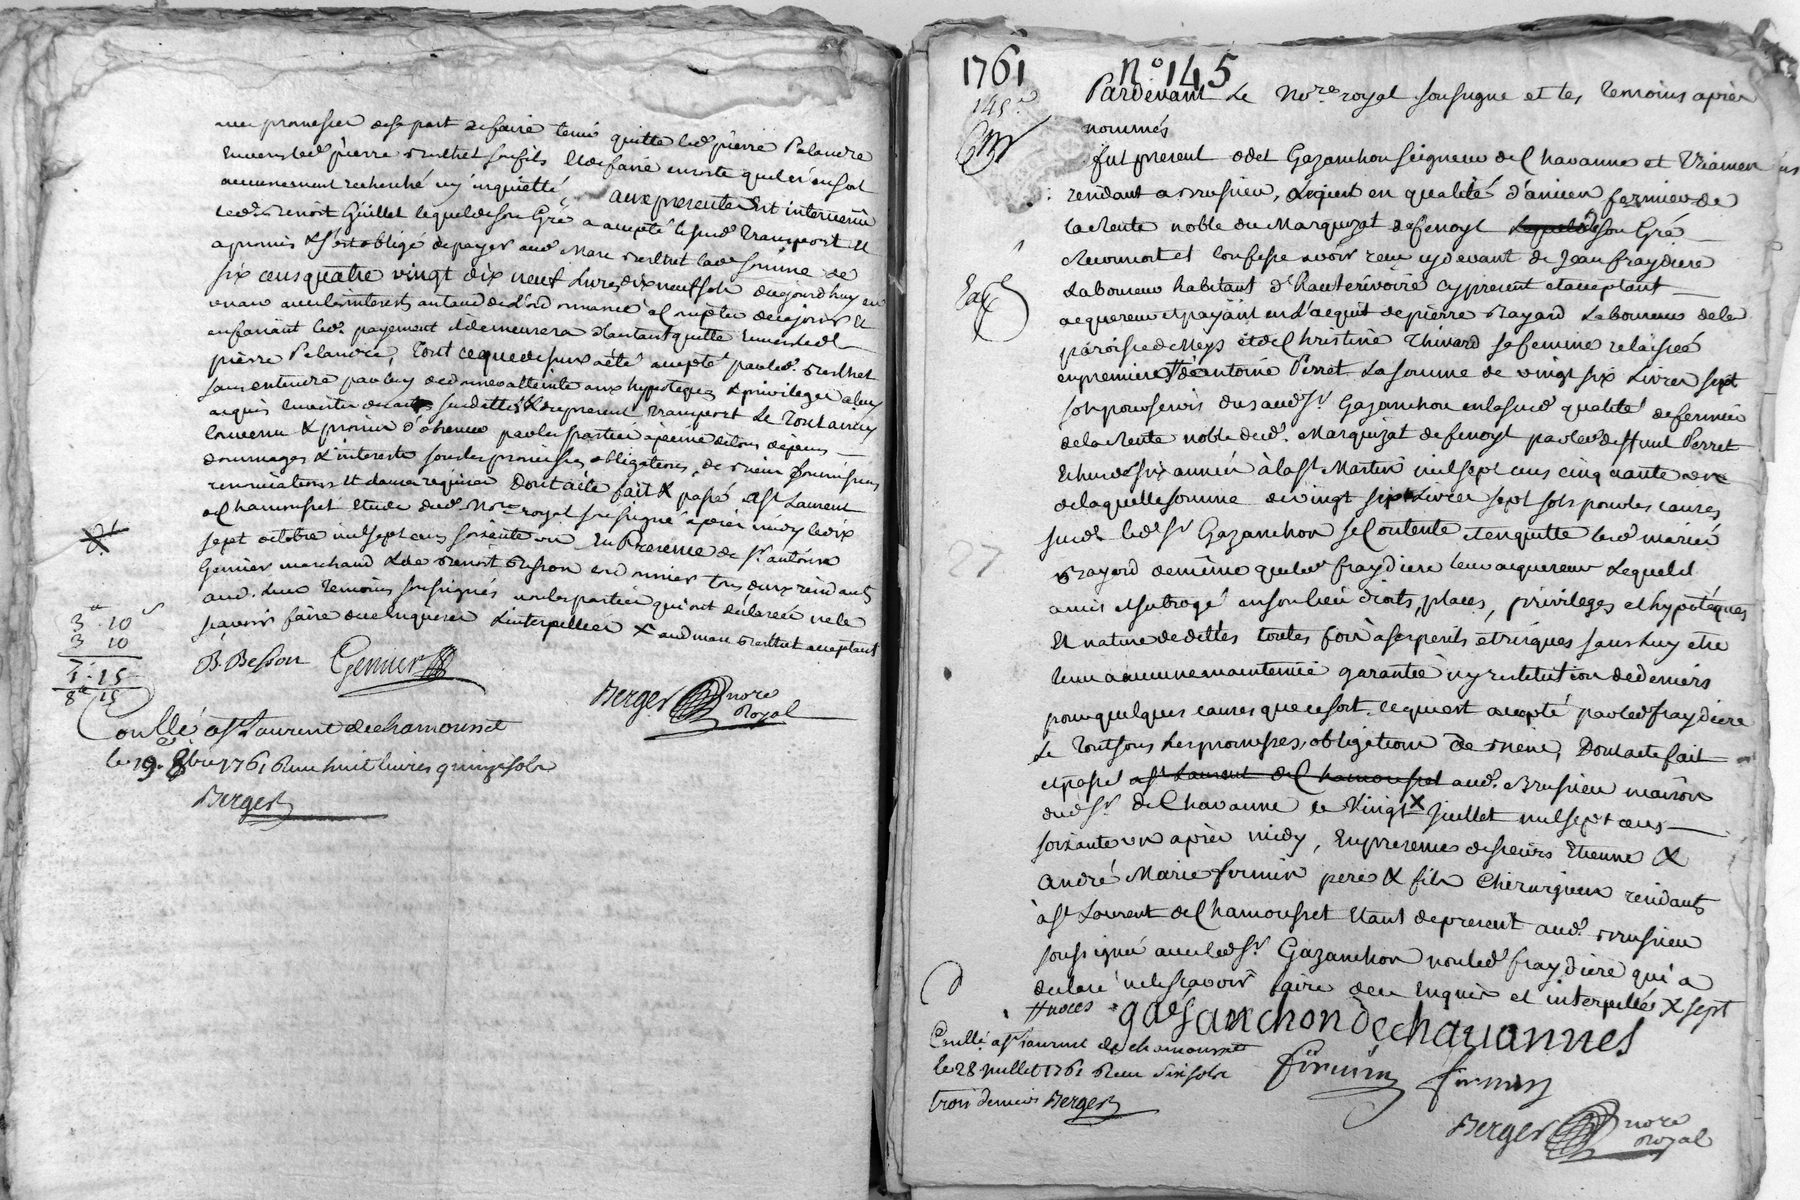 avec promesse de sa part de faire tenir quitte led. pierre Pelandre
Envers led. pierre Berthet son fils Et de faire en sorte quil n'en soit
aucunement recherché ny inquietté aux presentes Est intervenu
led. Benoit Guillet lequel de son Gré a accepté le susd. transport Et
a promis & s'est obligé de payer aud. Marc Berthet lad. somme de
six cens quatre vingt dix neuf Livres dix neuf sols dicy
en avec interets au taux de L'ordonnance à Compter de ce jour Et
en faisant led. payement il demeurera d'autant quitte Envers led.
pierre Pelandre, Tout ce que dessus a été accepté par led. Berthet
sans entendre par luy deddonner atteinte aux hypoteques & privileges a luy
acquis En vertu des actes susdattés & du present transport Le Tout ainsy
Convenu & promis d'observer par les parties à peine de tous dépens
dommages & interets sous les promesses, obligations, de biens soumissions
renonciations Et clauses requises Dont acte fait & passé a St Laurent
de Chamousset Etude dud. Nore. royal soussigné après midy le dix
sept octobre mil sept cens soixante un En Presence de Sr. antoine
Genier marchand & de Benoit Besson cordonnier tous deux residants
aud. Lieu temoins soussignés non les parties qui ont déclarées ne le
scavoir faire de ce Enquises & interpellées X aud. marc Berthet acceptant
B. Besson Genier
3 . 10
3 10
1 . 15
8 15
Berger nore
Royal
Conllé a St Laurent de chamousset
le 19. 8bre 1761 Reçu huit livres quinze sols
Berger
1761 n.° 145
145.e
Pardevant Le Nore. royal soussigné et les temoins après
nommés
fut present odet Gazanchon seigneur de Chavanne et Viamen
residant a Brusieu, Lequel en qualité d'ancien fermier de
la Rente noble du Marquizat de fenoyl Lequel de son Gré
Reconnoit et confesse avoir reçu cydevant de Jean fraydiere
Laboureur habitant d'hauterivoire cy present et acceptant
acquereur et payant en L'acquit de pierre Bayard Laboureur de la
paroisse de Meys et de Christine Thivard sa femme relaissée
en premiere # de antoine Perret La somme de vingt six Livres sept
sols pour servis dus aud. Sr. Gazanchon en la susd. qualité de fermier
de la Rente noble dud. Marquizat de fenoyl par led. deffunt Perret
Echus de six années à la St Martin mil sept cens cinquante
de laquelle somme de vingt six Livres sept sols pour les causes
susd. led. Sr Gazanchon se Contente & en quitte lesd. mariés
Bayard de même que led. fraydiere leur acquereur Lequel il
a mis & subrogé en son lieu droits, places, privileges et hypoteques
Et nature de dettes toutes fois à ses perils et risques sans luy etre
tenu a aucune maintenue garantie ny restitution de deniers
pour quelques causes que ce soit, ce qui est accepté par led. fraydiere
Le Tout sous Les promesses, obligation de biens, Dont acte fait
et passé a St Laurent de Chamousset aud. Brusieu maison
dud. Sr. de Chavanne le Vingt X Juillet mil sept cens
soixante un après midy, En presences de sieurs Etienne &
André Marie firmin pere & fils Chirurgiens residants
à St Laurent de Chamousset Etant de present aud. Brusieu
soussignés avec led. Sr. Gazanchon non led. fraydiere qui a
declaré ne le scavoir faire de ce Enquis et interpellés X sept
# noces
gaesanchon de chauannes
Conllé a St Laurent de chamousset
le 28 juillet 1761 Reçu six sols
trois deniers Berger
firmin firmin
Berger nore
Royal
27